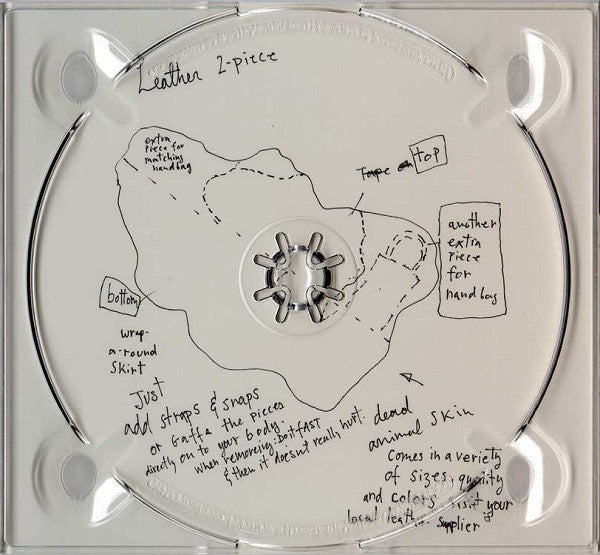 Leather 2-piece
extra
piece for
matching
handbag
Tape on TOP
another
extra
piece
for
handbag
bottom
wrap-
a-round
skirt
Just
add straps & snaps
or Gaffa the pieces
directly on to your body.
when removing: do it FAST
& then it doesn't really hurt.
dead
animal skin
Comes in a veriety
of sizes, quality
and colors visit your
local leather supplier